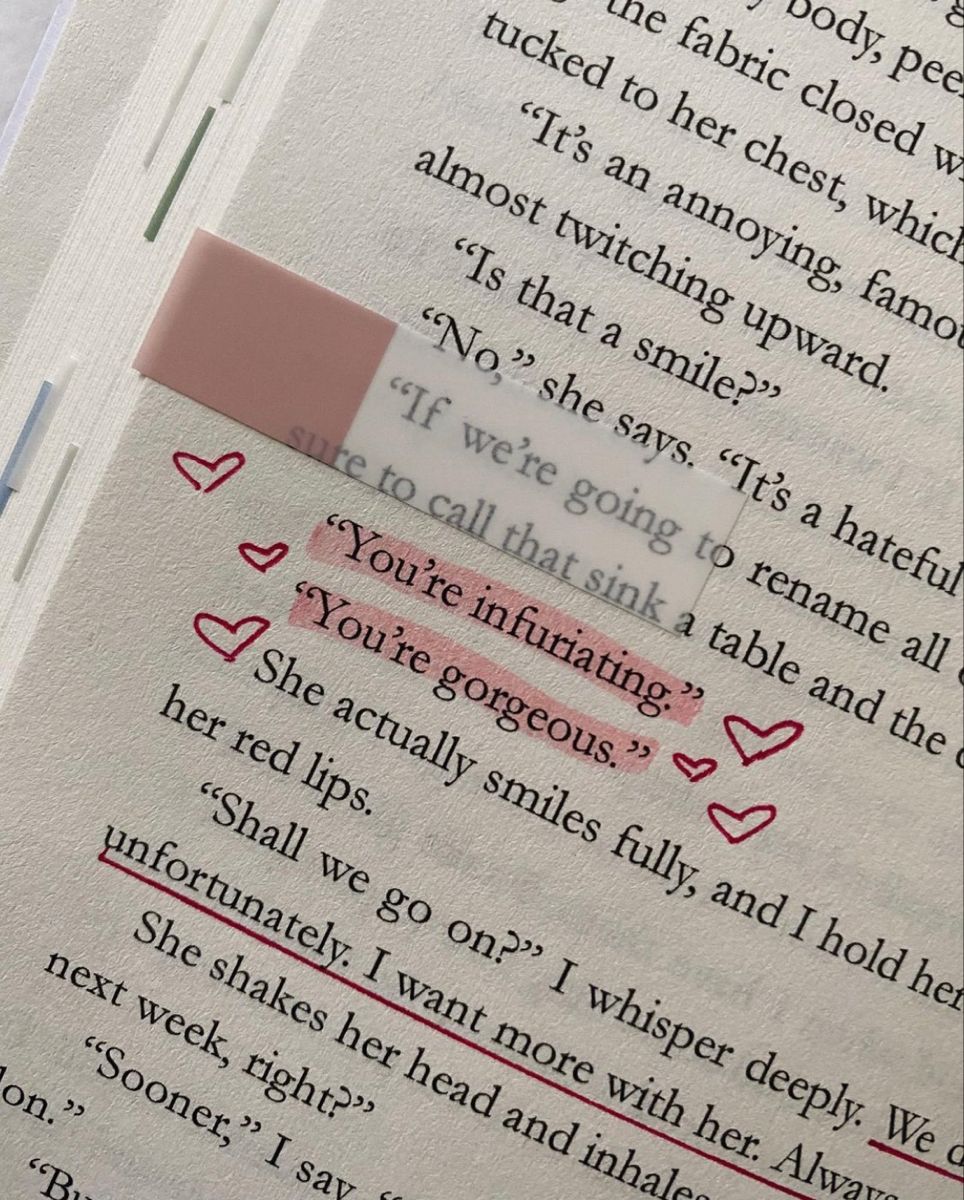 body, pee
the fabric closed w
tucked to her chest, which
“It’s an annoying, famou
almost twitching upward.
“Is that a smile?”
“No,” she says. “It’s a hateful
“If we’re going to rename all
sure to call that sink a table and the
“You’re infuriating.”
“You’re gorgeous.”
She actually smiles fully, and I hold her
her red lips.
“Shall we go on?” I whisper deeply. We d
unfortunately. I want more with her. Always
She shakes her head and inhales
next week, right?”
“Sooner,” I say
lon.”
“Bu